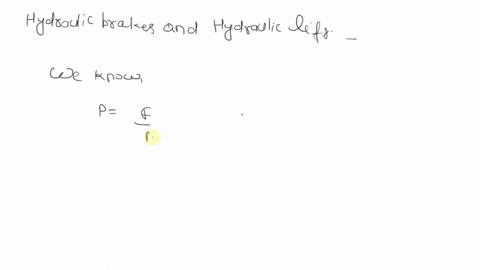 Hydraulic brakes and Hydraulic lift. _
We know,
P = F